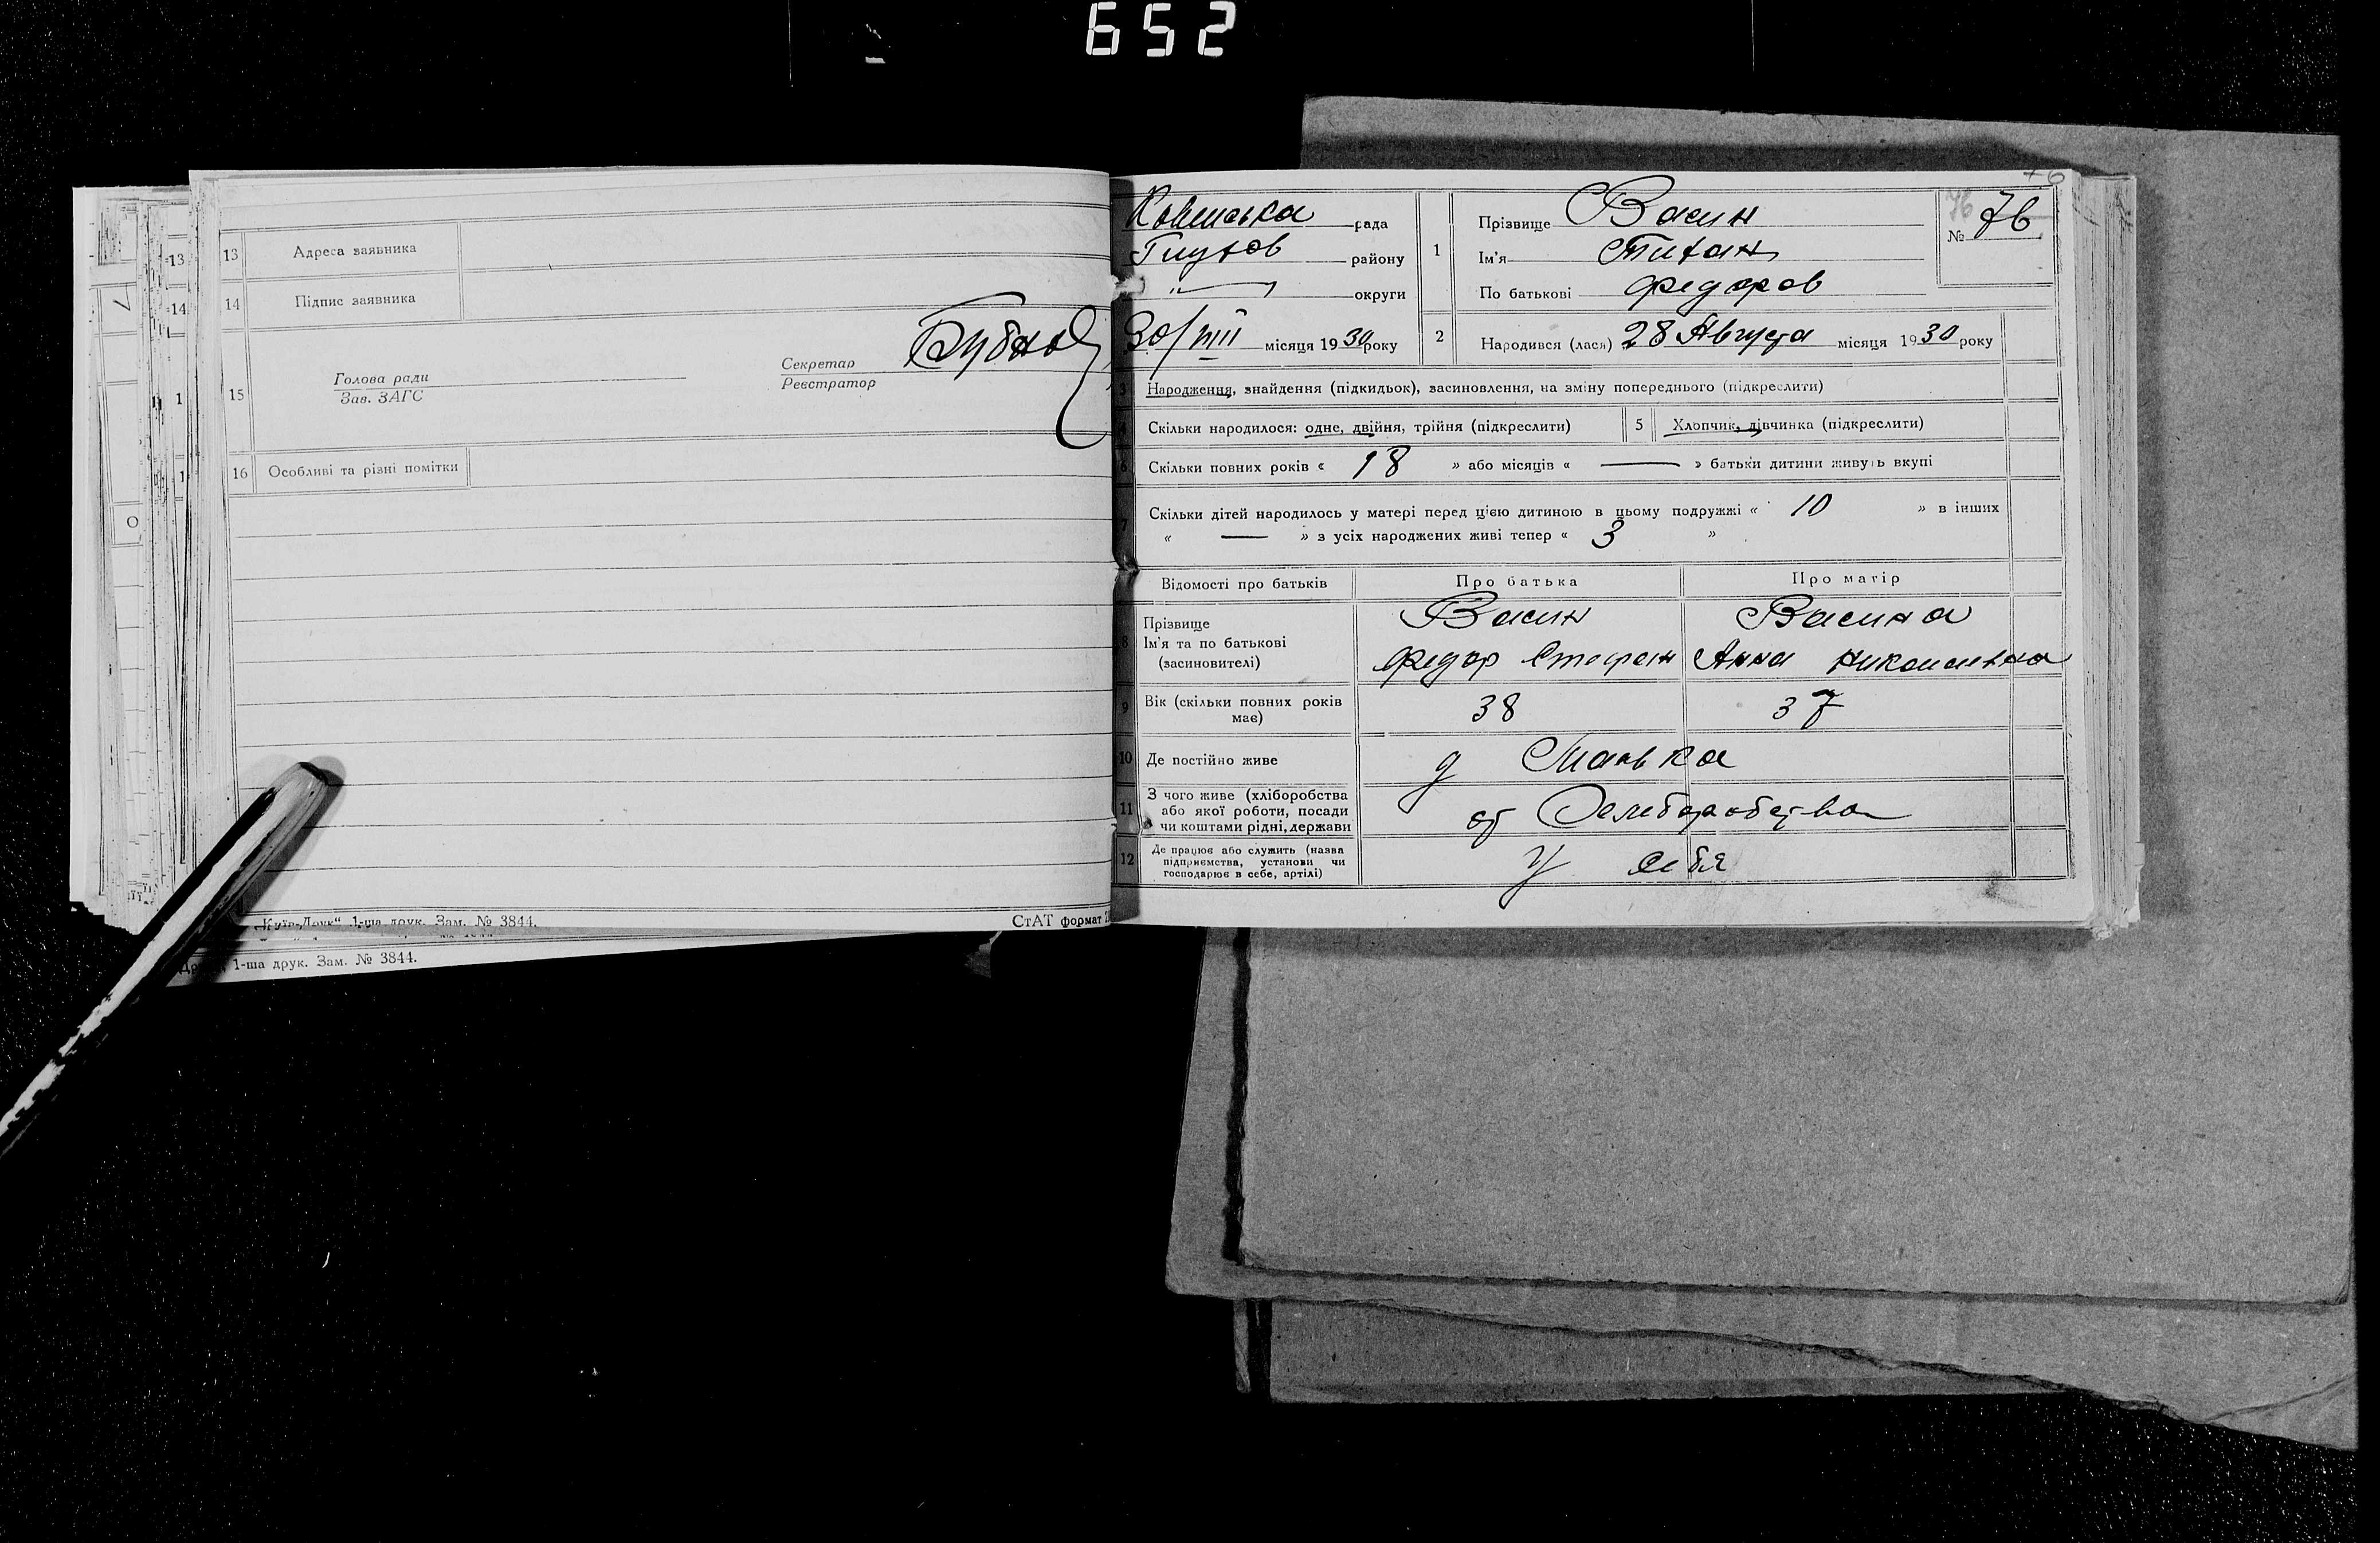 652
13 Адреса заявника
14 Підпис заявника
15 Голова ради
Зав. ЗАГС
Секретар
Реєстратор
16 Особливі та різні помітки
„Київ-Друк“ 1-ша друк. Зам. № 3844.
СтАТ формат
1-ша друк. Зам. № 3844.
рада
района
округи
30/VIII місяця 1930 року
1 Прізвище Васин
Ім'я Тихан
По батькові Федоров
№ 76
2 Народився (лася) 28 Августа місяця 1930 року
3 Народження, знайдення (підкидьок), засиновлення, на зміну попереднього (підкреслити)
Скільки народилося: одне, двійня, трійня (підкреслити)
5 Хлопчик, дівчинка (підкреслити)
6 Скільки повних років « 18 » або місяців « — » батьки дитини живуть вкупі
7 Скільки дітей народилось у матері перед цією дитиною в цьому подружжі « 10 » в інших
« — » з усіх народжених живі тепер « 3 »
Відомості про батьків
Про батька
Про матір
8 Прізвище
Ім'я та по батькові
(засновителі)
Васин
Федор Стефан
Васина
Анна
9 Вік (скільки повних років
має)
38
37
10 Де постійно живе
д
11 З чого живе (хліборобства
або якої роботи, посади
чи коштами рідні, держави
от
12 Де працює або служить (назва
підприємства, установи чи
господарює в себе, артілі)
У себя